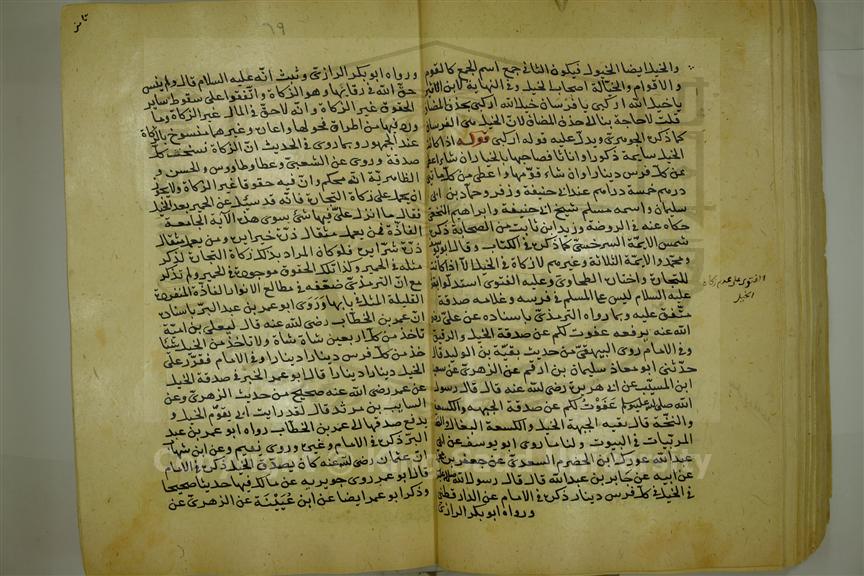 والخيل ايضا الخيول فيكون الثاني جمع اسم الجمع كالقوم
والاقوام والخيالة اصحاب الخيل وفي النهاية لابن الاثير
يا خيل الله اركبي يا فرسان خيل الله اركبي بحذف المضاف
قلت لا حاجة بنا الى حذف المضاف لان الخيل هي الفرسان
كما ذكره الجوهري ويدل عليه قوله اركبي قوله اذا كانت
الخيل سائمة ذكورا واناثا فصاحبها بالخيار ان شاء اعطى
عن كل فرس دينارا وان شاء قومها واعطى من كل مائتي
درهم خمسة دراهم عند ابي حنيفة وزفر وحماد بن ابي
سليمان واسمه مسلم شيخ ابي حنيفة وابراهيم النخعي
حكاه عنه في الروضة وزيد ابن ثابت من الصحابة ذكره
شمس الايمة السرخسي كما ذكره في الكتاب وقال ابو يوسف
ومحمد والايمة الثلاثة وغيرهم لا زكاة في الخيل الا اذا كانت
للتجارة واختاره الطحاوي وعليه الفتوى استدلوا بقوله
عليه السلام ليس على المسلم في فرسه وغلامه صدقة
متفق عليه وبما رواه الترمذي باسناده عن علي رضي
الله عنه يرفعه عفوت لكم عن صدقة الخيل والرقيق
وفي الامام روى البيهقي من حديث بقية بن الوليد قال
حدثني ابو معاذ سليمان بن ارقم عن الزهري عن سعيد
ابن المسيب عن ابي هريرة رضي الله عنه قال قال رسول
الله صلى الله عليه وسلم عفوت لكم عن صدقة الجبهة والكسعة
والنخة قال بقية الجبهة الخيل والكسعة البغال والنخة
المربيات في البيوت ولنا ما روى ابو يوسف عن ابي
عبد الله غورك ابن الخضرم السعدي عن جعفر بن محمد
عن ابيه عن جابر بن عبد الله قال قال رسول الله صلى الله عليه
في الخيل في كل فرس دينار ذكره في الامام عن الدارقطني
ورواه ابو بكر الرازي
الفتوى على عدم زكاة
الخيل
٦٩
ورواه ابو بكر الرازي وثبت انه عليه السلام قال ولم ينس
حق الله في رقابها وهو الزكاة واتفقوا على سقوط ساير
الحقوق غير الزكاة وانه لا حق في المال غير الزكاة وما
ورد فيها من اطراق فحولها واعارة وغيرها منسوخ بالزكاة
عند الجمهور وبما روي في الحديث ان الزكاة نسخت كل
صدقة وروي عن الشعبي وعطا وطاووس والحسن و
الظاهرية انه محكم وان فيه حقوقا غير الزكاة ولا يجوز
ان يحمل على زكاة التجارة فانه قد سئل عن الحمير بعد الخيل
فقال ما انزل علي فيها شي سوى هذه الاية الجامعة
الفاذة فمن يعمل مثقال ذرة خيرا يره ومن يعمل مثقال
ذرة شرا يره فلو كان المراد بذلك زكاة التجارة لذكر
مثله في الحمير وكذا تلك الحقوق موجودة في الحمير ولم تذكر
مع ان الترمذي ضعفه في مطالع الانوار الفاذة المنفردة
القليلة المثل في بابها وروى ابو عمر بن عبد البر باسناده
ان عمر بن الخطاب رضي الله عنه قال ليعلى بن امية
تاخذ من كل اربعين شاة شاة ولا تاخذ من الخيل شيئا
خذ من كل فرس دينارا دينارا وفي الامام فقرر على
الخيل دينارا دينارا قال ابو عمر الخبر في صدقة الخيل
عن عمر رضي الله عنه صحيح من حديث الزهري وعن
السايب بن مرثد قال لقد رايت ابي يقوم الخيل و
يدفع صدقها الى عمر بن الخطاب رواه ابو عمر بن عبد
البر ذكره في الامام وغيره وروى نعيم وعن ابن شهاب
ان عثمان رضي الله عنه كان يصدق الخيل ذكره في الامام
قال ابو عمر روى جويرية عن مالك فيها حديثا صحيحا
وذكر ابو عمر ايضا عن ابن عيينة عن الزهري عن